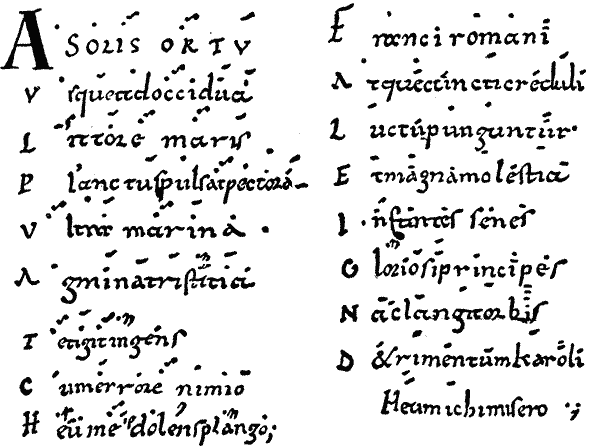 A SOLIS ORTV
V squeadoccidua
L ittore maris
P lanctuspulsatpectora
V ltra marina .
A gminatristitia
T etigitingens
C umerrore nimio
H eu me dolensplango;
F ranciromani
A tquecuncticreduli
L uctupunguntur.
E tmagnamolestia
I nfantes senes
G loriosiprincipes
N aclangitorbis
D &rimentumkaroli
Heumichimisero ·;